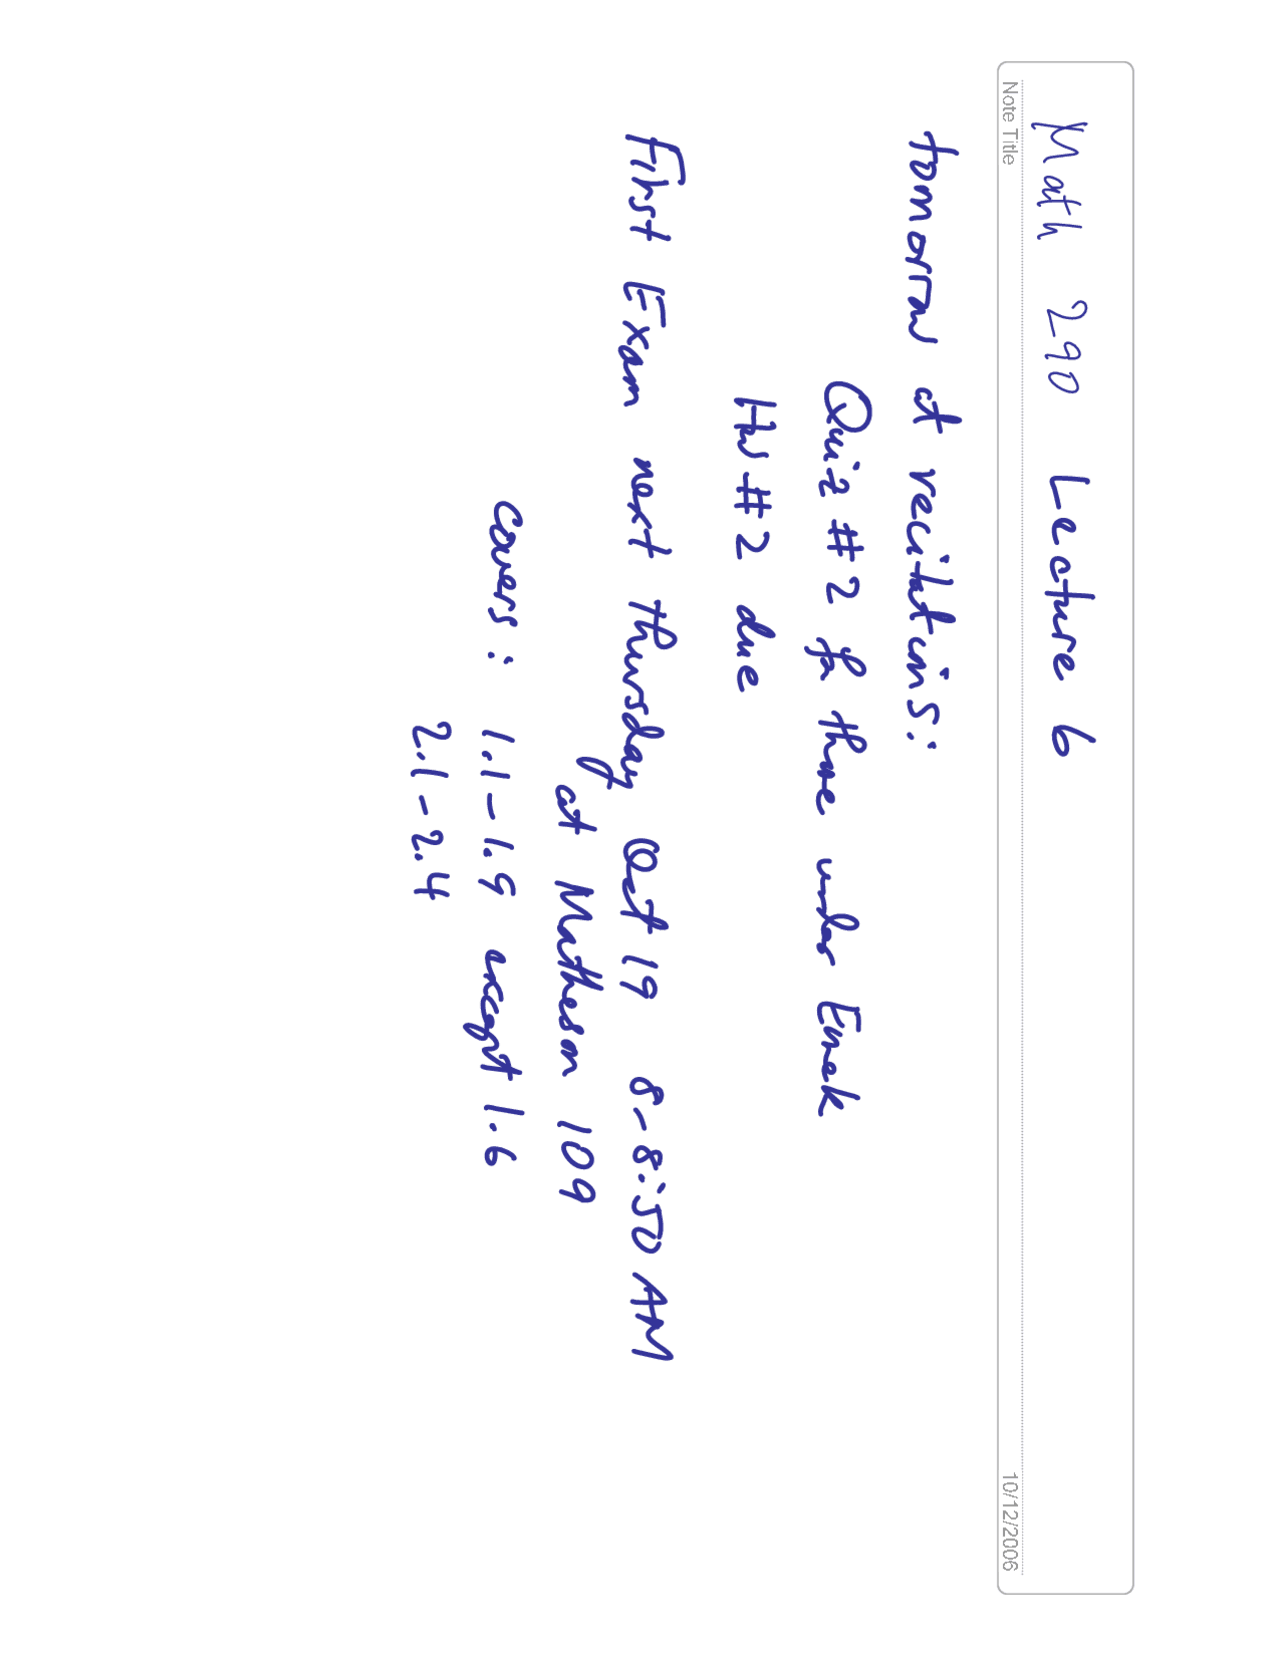 Math 290 Lecture 6
Note Title
10/12/2006
tomorrow at recitations:
Quiz #2 for those under Emek
HW #2 due
First Exam next Thursday Oct 19 8-8:50 AM
at Matheson 109
covers: 1.1-1.9 except 1.6
2.1-2.4